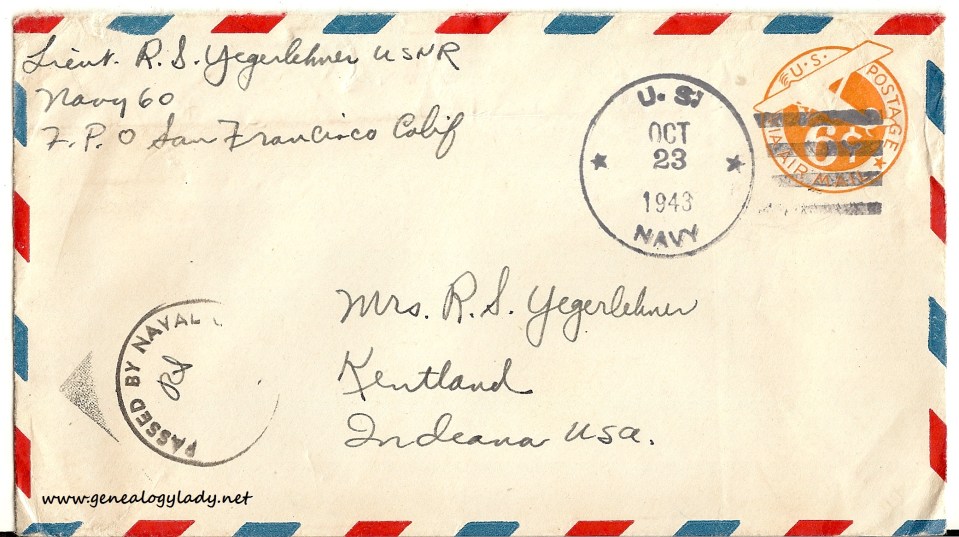 Lieut. R. S. Yegerlehner USNR
Navy 60
F. P. O San Francisco Calif
U. S.
OCT
23
1943
NAVY
U.S. POSTAGE
6¢
VIA AIR MAIL
Mrs. R. S. Yegerlehner
Kentland
Indeana USA.
PASSED BY NAVAL
www.genealogylady.net